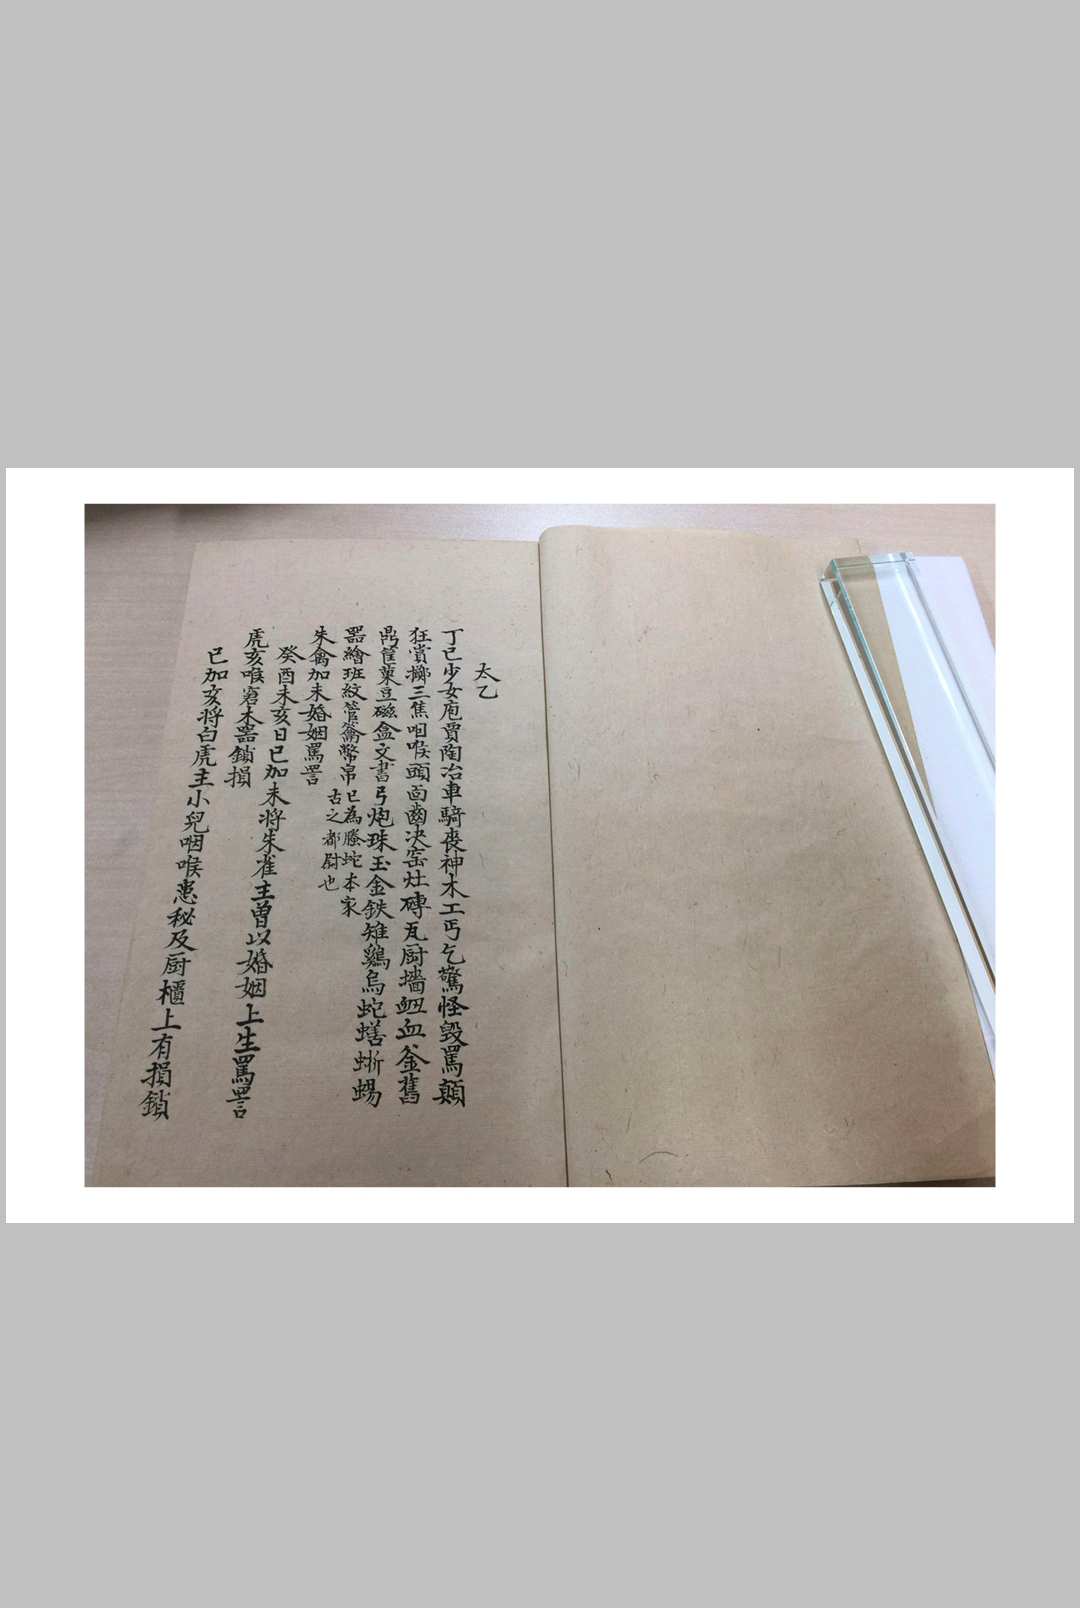 太乙
丁巳少女庖賈陶冶車騎喪神木工丐乞驚怪毀罵顛
狂賞擲三焦咽喉頭面齒决窑灶磚瓦厨墻衄血釜舊
鼎筐菓豆磁盒文書弓炮珠玉金鉄雉鷄烏蛇蟮蜥蜴
器繪班紋管籥幣帛巳為螣蛇本家
古之都尉也
朱禽加未婚姻罵詈
癸酉未亥日巳加未将朱雀主曽以婚姻上生罵詈
虎亥喉窘木器鎖損
巳加亥将白虎主小兒咽喉患秘及厨櫃上有損鎖